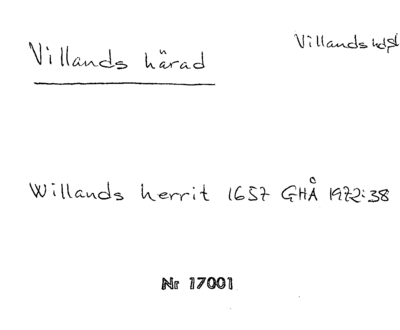 Villands härad
Villands hd, Sk
Willands herrit 1657 GHÅ 1972:38
Nr 17001